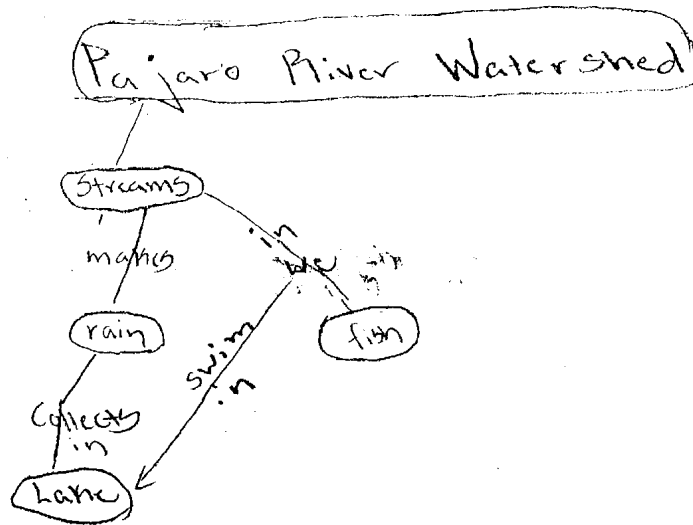 Pajaro River Watershed
Streams
makes
in
rain
fish
swim
in
Collects
in
Lake